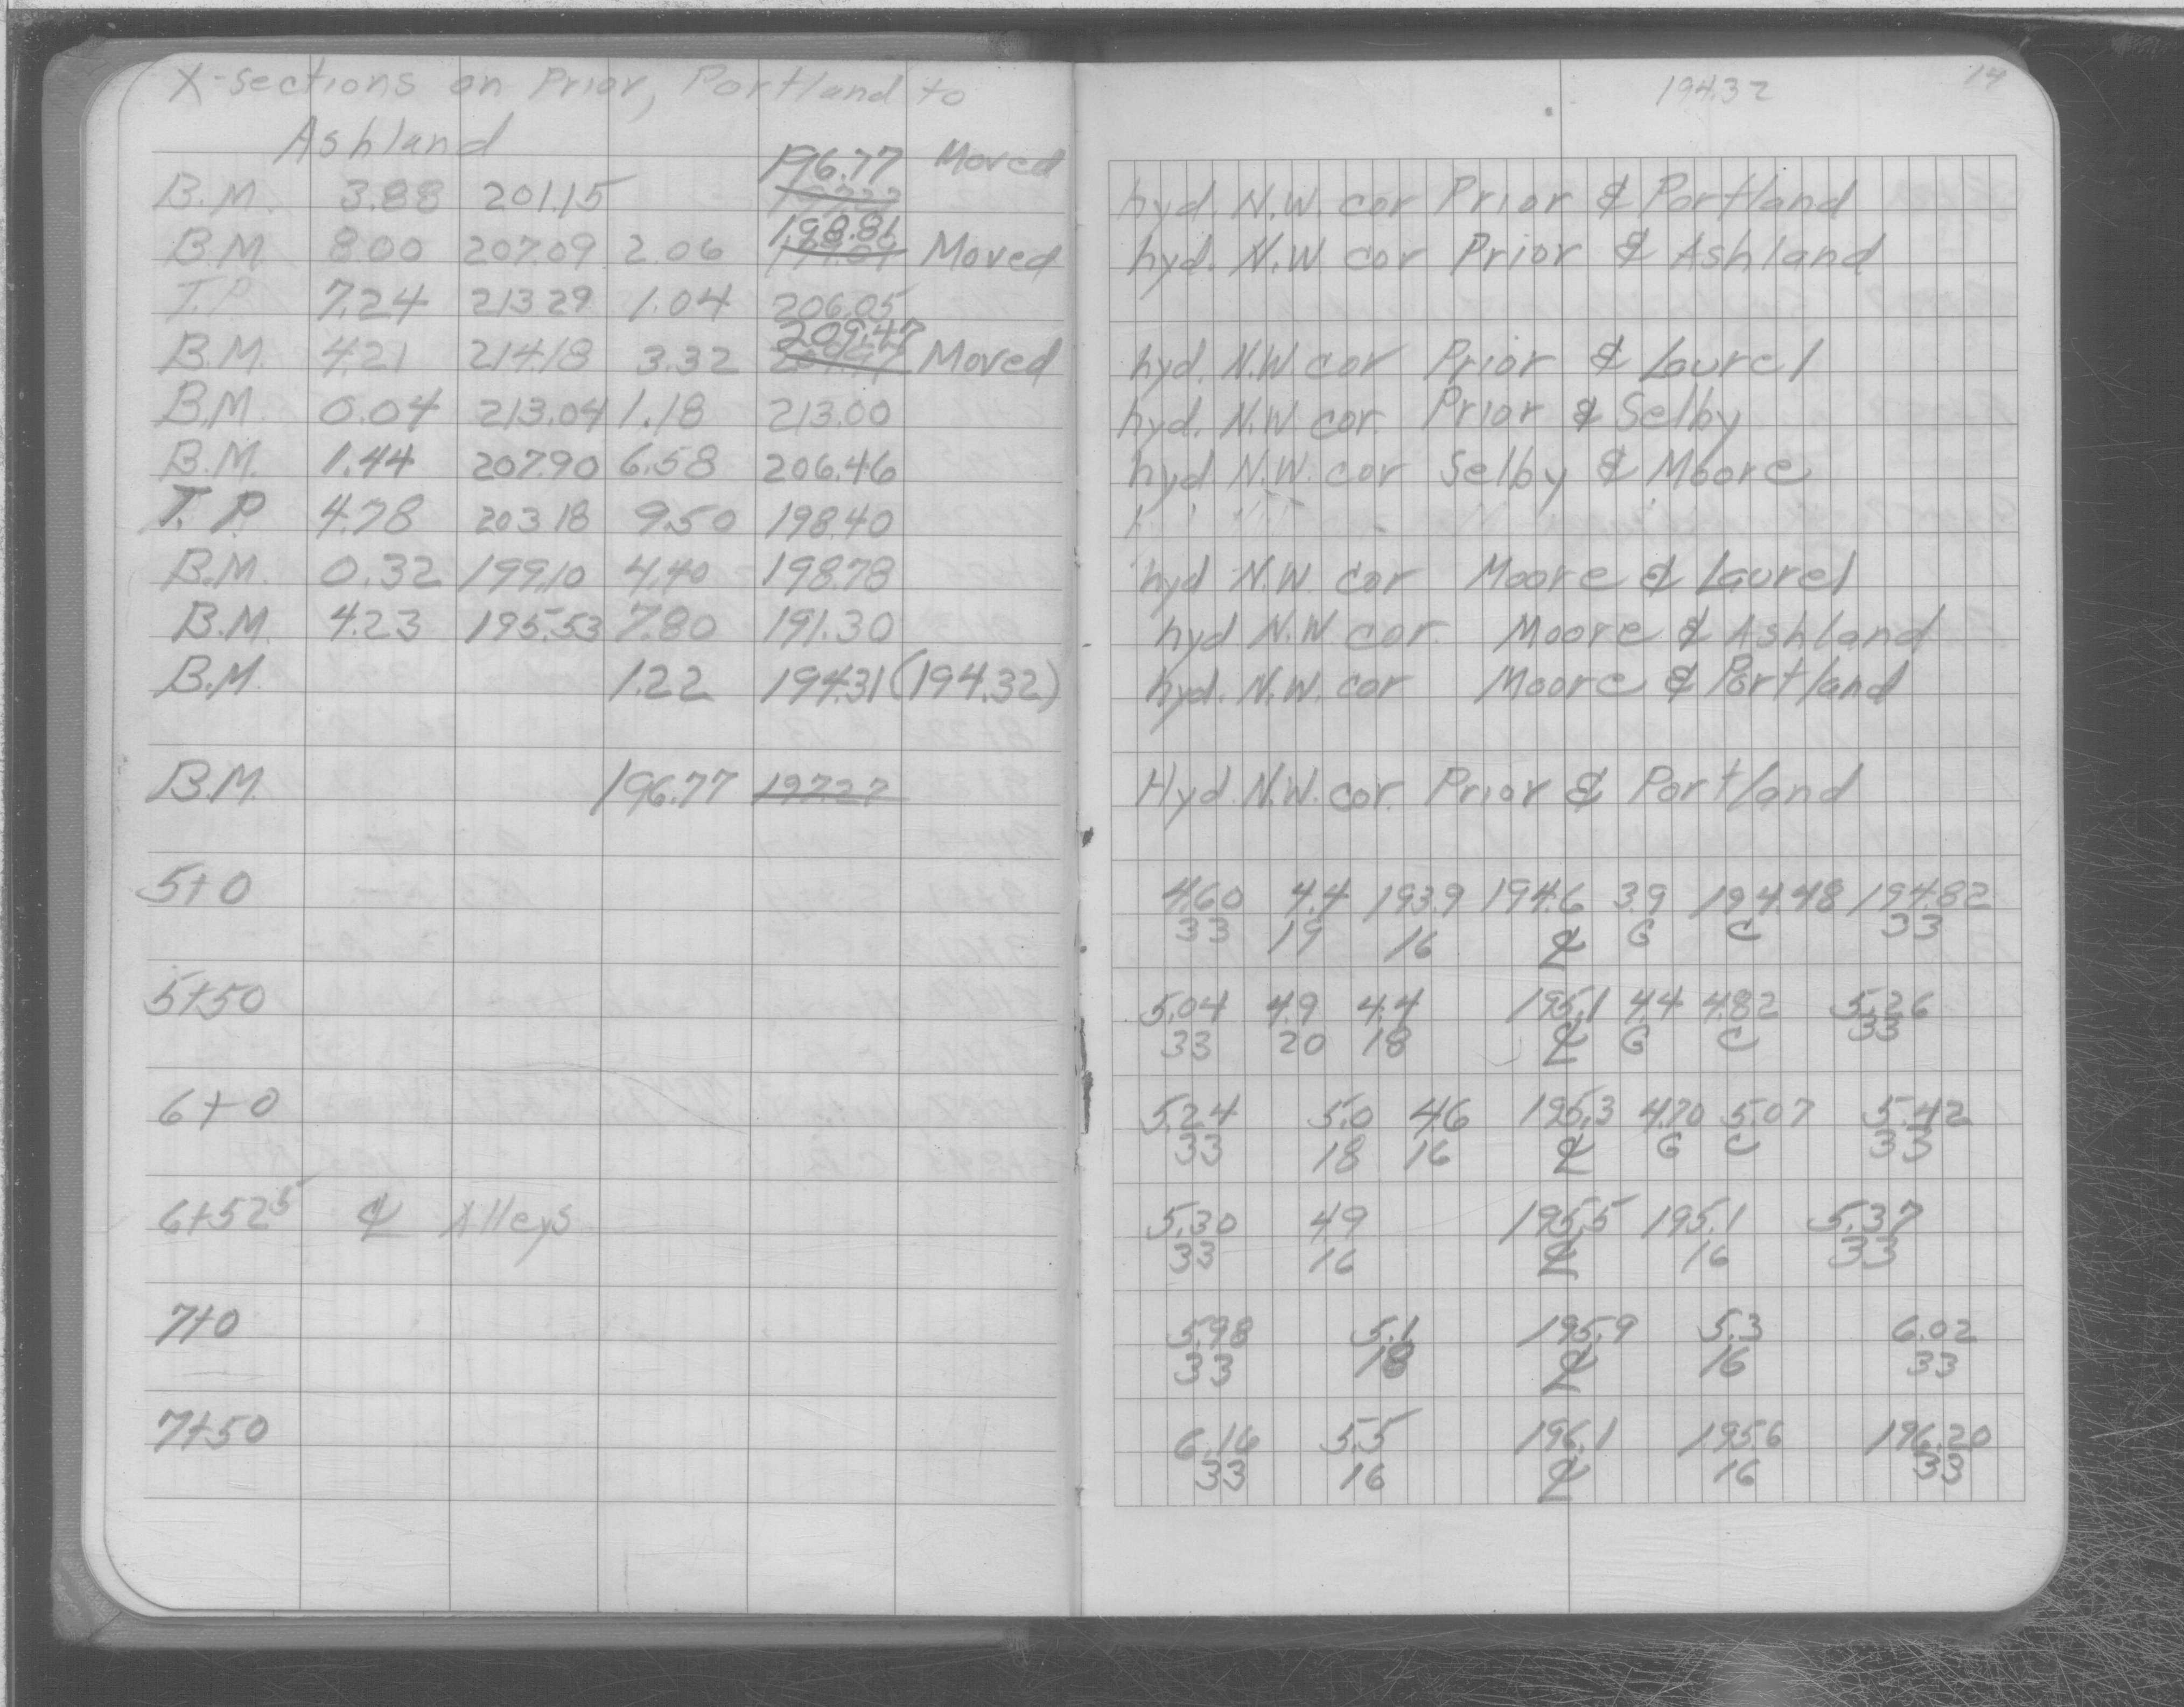 X-sections on Prior, Portland to
Ashland
196.77 Moved
B.M. 3.88 201.15 197.27
198.81
B.M. 8.00 207.09 2.06 199.09 Moved
T.P. 7.24 213.29 1.04 206.05
209.47
B.M. 4.21 214.18 3.32 209.97 Moved
B.M. 0.04 213.04 1.18 213.00
B.M. 1.44 207.90 6.58 206.46
T.P. 4.78 203.18 9.50 198.40
B.M. 0.32 199.10 4.40 198.78
B.M. 4.23 195.53 7.80 191.30
B.M. 1.22 194.31 (194.32)
B.M. 196.77 197.27
5+0
5+50
6+0
6+52⁵ ℄ Alleys
7+0
7+50
194.32 14
hyd. N.W. cor Prior & Portland
hyd. N.W. cor Prior & Ashland
hyd. N.W. cor Prior & Laurel
hyd. N.W. cor. Prior & Selby
hyd N.W. cor Selby & Moore
hyd N.W. cor Moore & Laurel
hyd N.W cor. Moore & Ashland
hyd. N.W. cor Moore & Portland
Hyd. N.W. cor. Prior & Portland
4.60 4.4 193.9 194.6 3.9 194.48 194.82
33 19 16 ℄ G C 33
5.04 4.9 4.4 195.1 4.4 4.82 5.26
33 20 18 ℄ G C 33
5.24 5.0 4.6 195.3 4.70 5.07 5.42
33 18 16 ℄ G C 33
5.30 4.9 195.5 195.1 5.37
33 16 ℄ 16 33
5.98 5.1 195.9 5.3 6.02
33 18 ℄ 16 33
6.16 5.5 196.1 195.6 196.20
33 16 ℄ 16 33